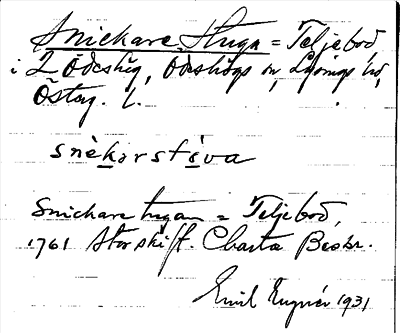 Snickare Stugan = Teljebod,
i L Ödeshög, Ödeshögs sn, Lysings hd,
Östag. l.
snèkarstúva
Snickare stugan = Teljebod,
1761 Storskift. Charta Beskr.
Emil 1931